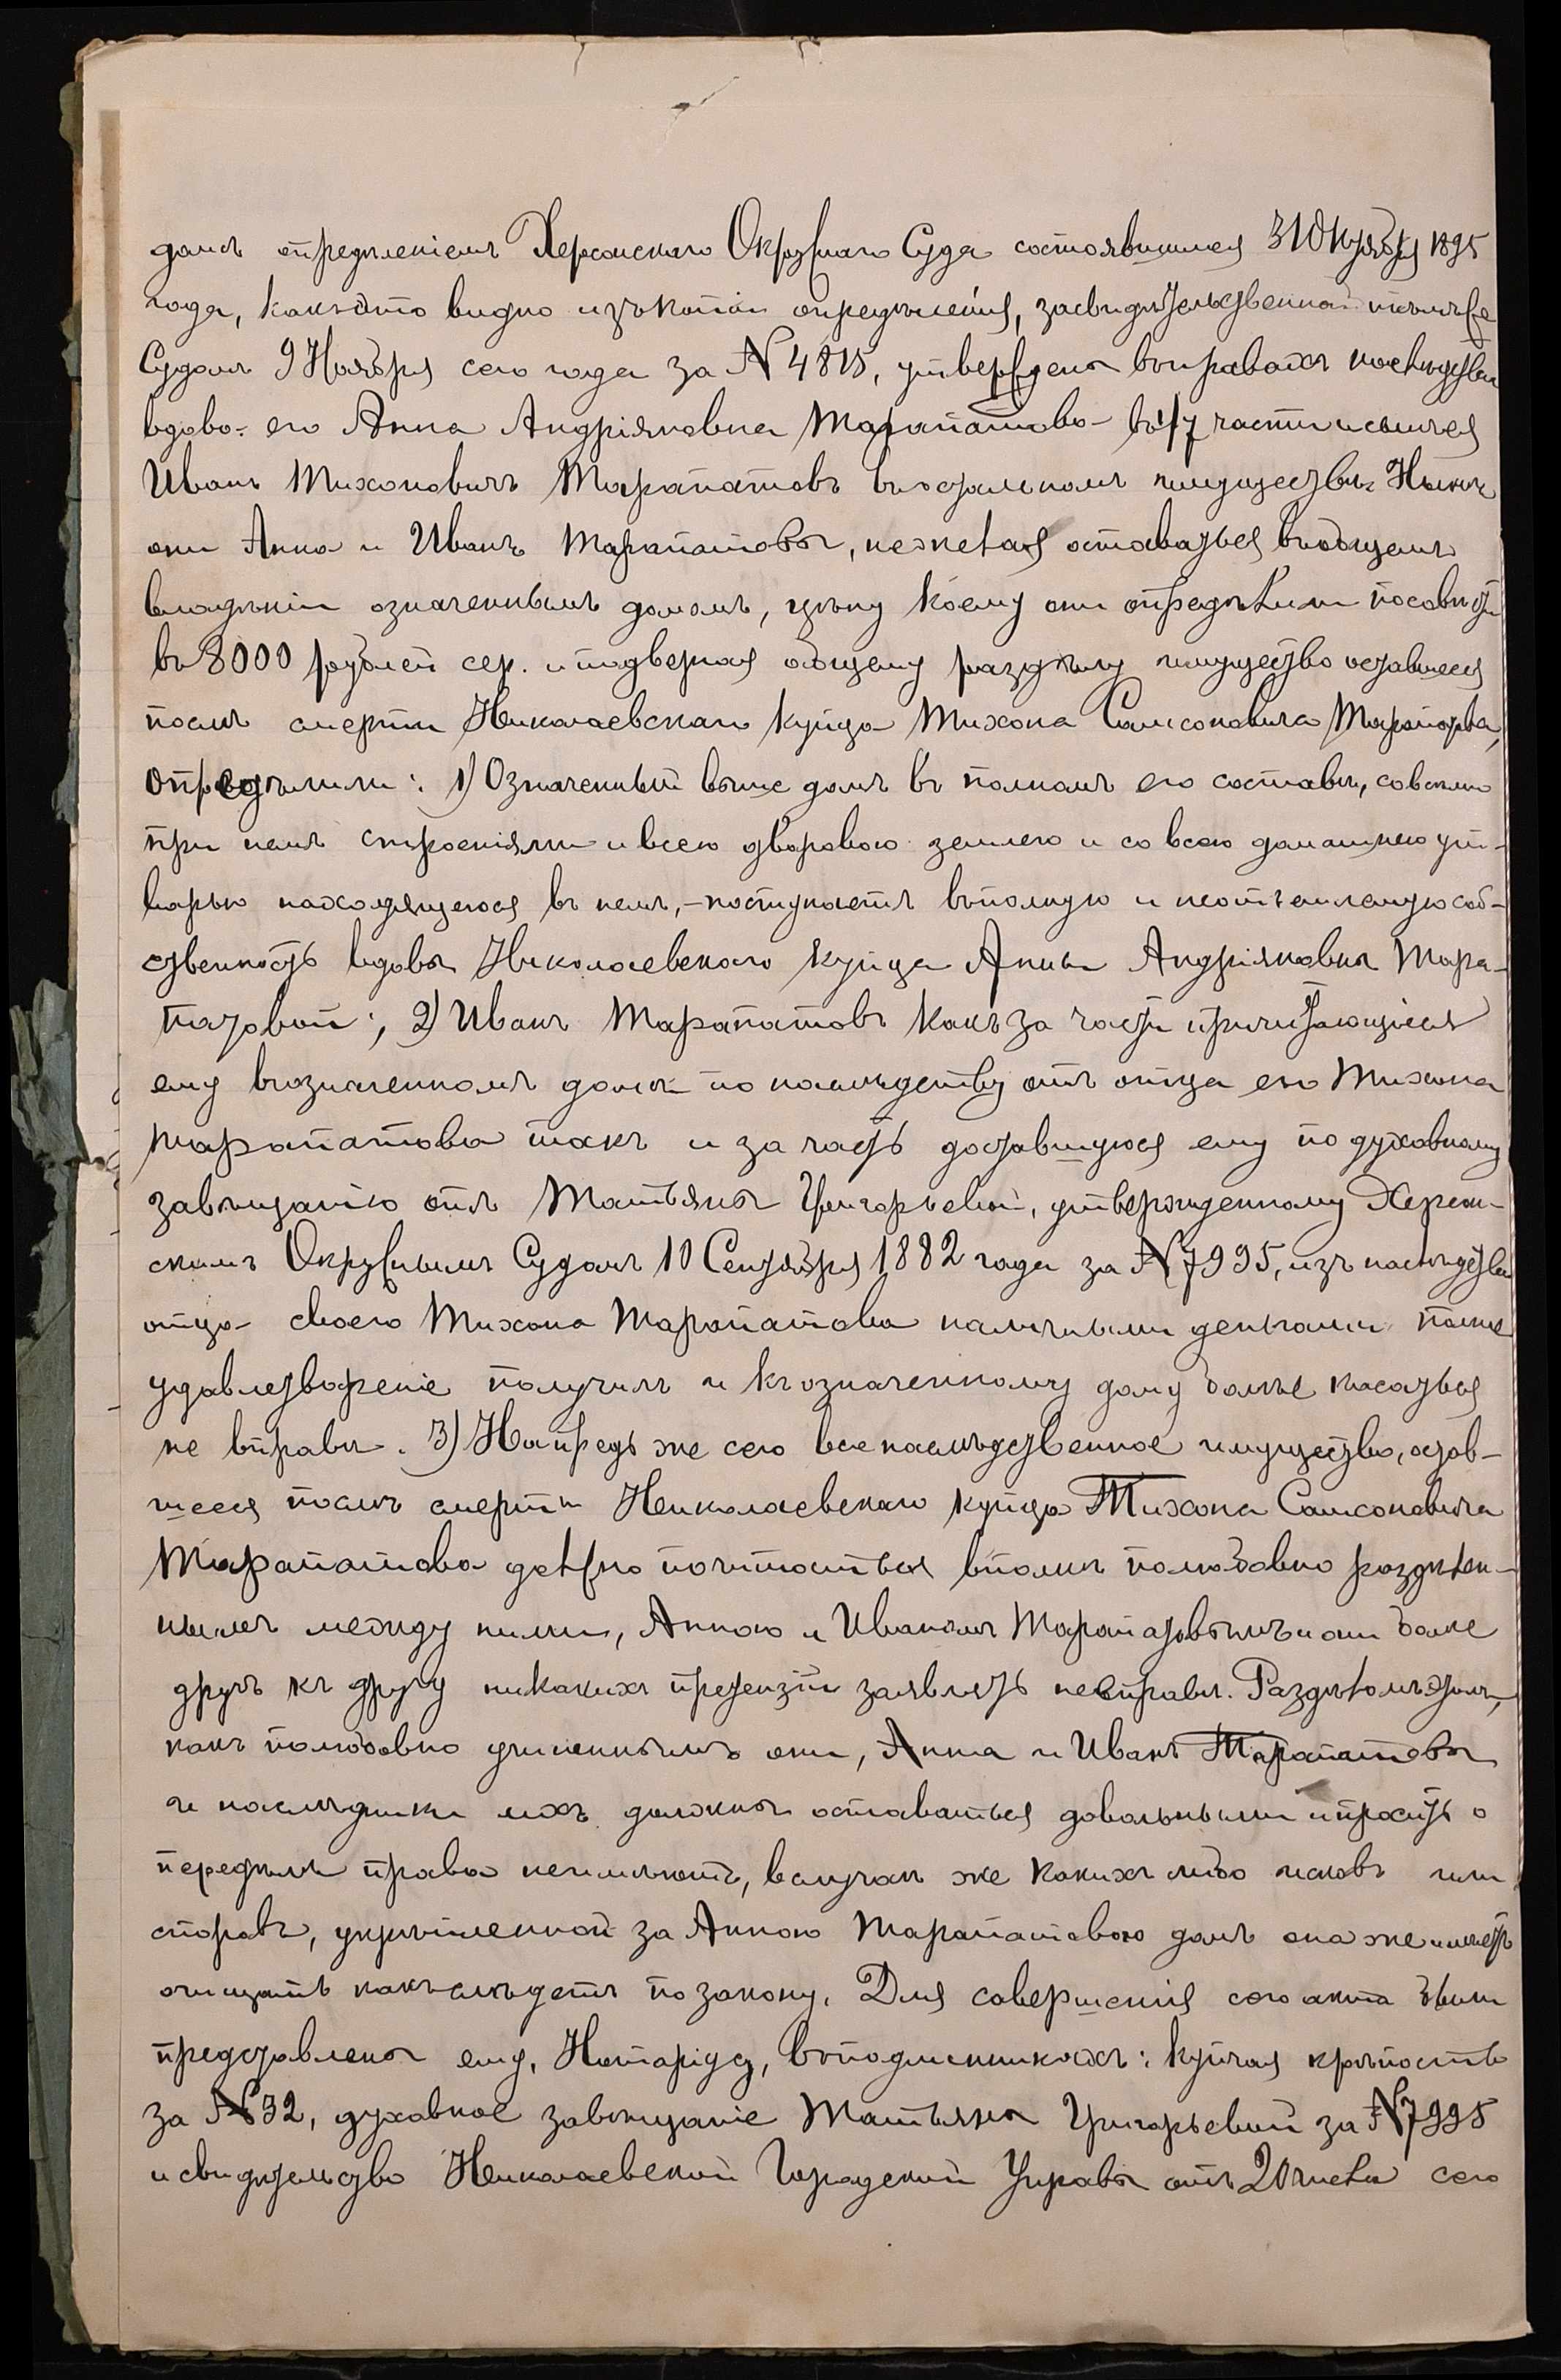 домъ опредѣленіемъ Херсонскаго Окружнаго Суда состоявшимся 31 Октября 1895
года, какъ это видно изъ копіи опредѣленія, засвидѣтельствованной тѣмъ же
Судомъ 9 Ноября сего года за № 4815, утверждены въ правахъ наслѣдства
вдова его Анна Андріяновна Тарапатова въ 1/7 части и сынъ ея
Иванъ Тихоновичъ Тарапатовъ въ остальномъ имуществѣ. Нынѣ
они Анна и Иванъ Тарапатовы, не желая оставаться въ общемъ
владѣніи означеннымъ домомъ, цѣну коему они опредѣлили по совѣсти
въ 8000 рублей сер. и подвергая общему раздѣлу имущество оставшееся
послѣ смерти Николаевскаго купца Тихона Самсоновича Тарапатова,
опредѣлили: 1) Означенный выше домъ въ полномъ его составѣ, со всѣми
при немъ строеніями и всею дворовою землею и со всею домашнею ут-
варью находящеюся въ немъ, – поступаетъ въ полную и неотъемлемую соб-
ственность вдовы Николаевскаго купца Анны Андріяновны Тара-
патовой; 2) Иванъ Тарапатовъ какъ за части причитающіяся
ему въ означенномъ домѣ по наслѣдству отъ отца его Тихона
Тарапатова такъ и за часть доставшуюся ему по духовному
завѣщанію отъ Татьяны Григорьевой, утвержденному Херсон-
скимъ Окружнымъ Судомъ 10 Сентября 1882 года за № 7995, изъ наслѣдства
отца своего Тихона Тарапатова наличными деньгами полное
удовлетвореніе получилъ и къ означенному дому болѣе касаться
не вправѣ. 3) Напредь же сего все наслѣдственное имущество, остав-
шееся послѣ смерти Николаевскаго купца Тихона Самсоновича
Тарапатова должно почитаться вполнѣ полюбовно раздѣлен-
нымъ между ними, Анною и Иваномъ Тарапатовымъ и они болѣе
другъ къ другу никакихъ претензій заявлять не вправѣ. Раздѣломъ этимъ,
какъ полюбовно учиненнымъ они, Анна и Иванъ Тарапатовы
и наслѣдники ихъ должны оставаться довольными и просить о
передѣлѣ права не имѣютъ, въ случаѣ же какихъ либо исковъ или
споровъ, укрѣпленной за Анною Тарапатовою домъ она же имѣетъ
очищать какъ слѣдетъ по закону. Для совершенія сего акта были
представлены ему, Нотаріусу, въ подлинникахъ: купчая крѣпость
за № 32, духовное завѣщаніе Татьяны Григорьевой за № 7995
и свидѣтельство Николаевской Городской Управы отъ 20 числа сего